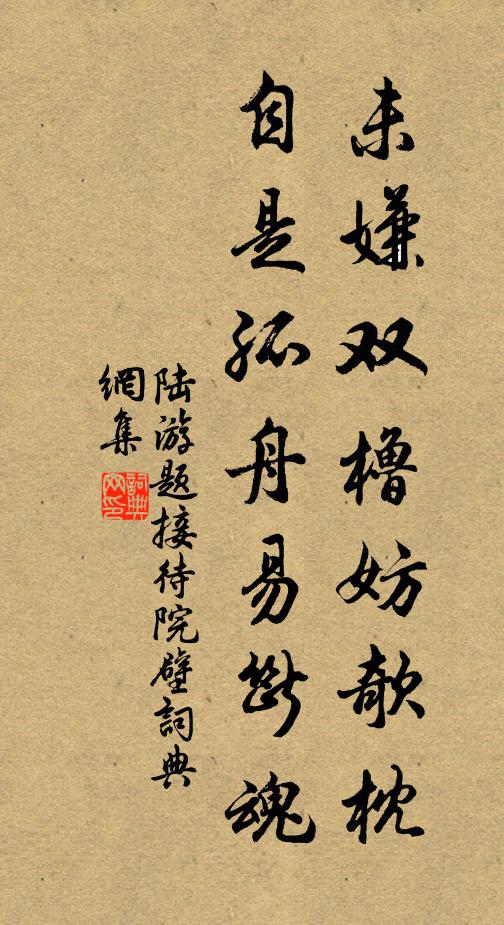 未嫌双橹妨欹枕
自是孤舟易断魂
陆游题接待院壁詞典
網集
詞典
网印